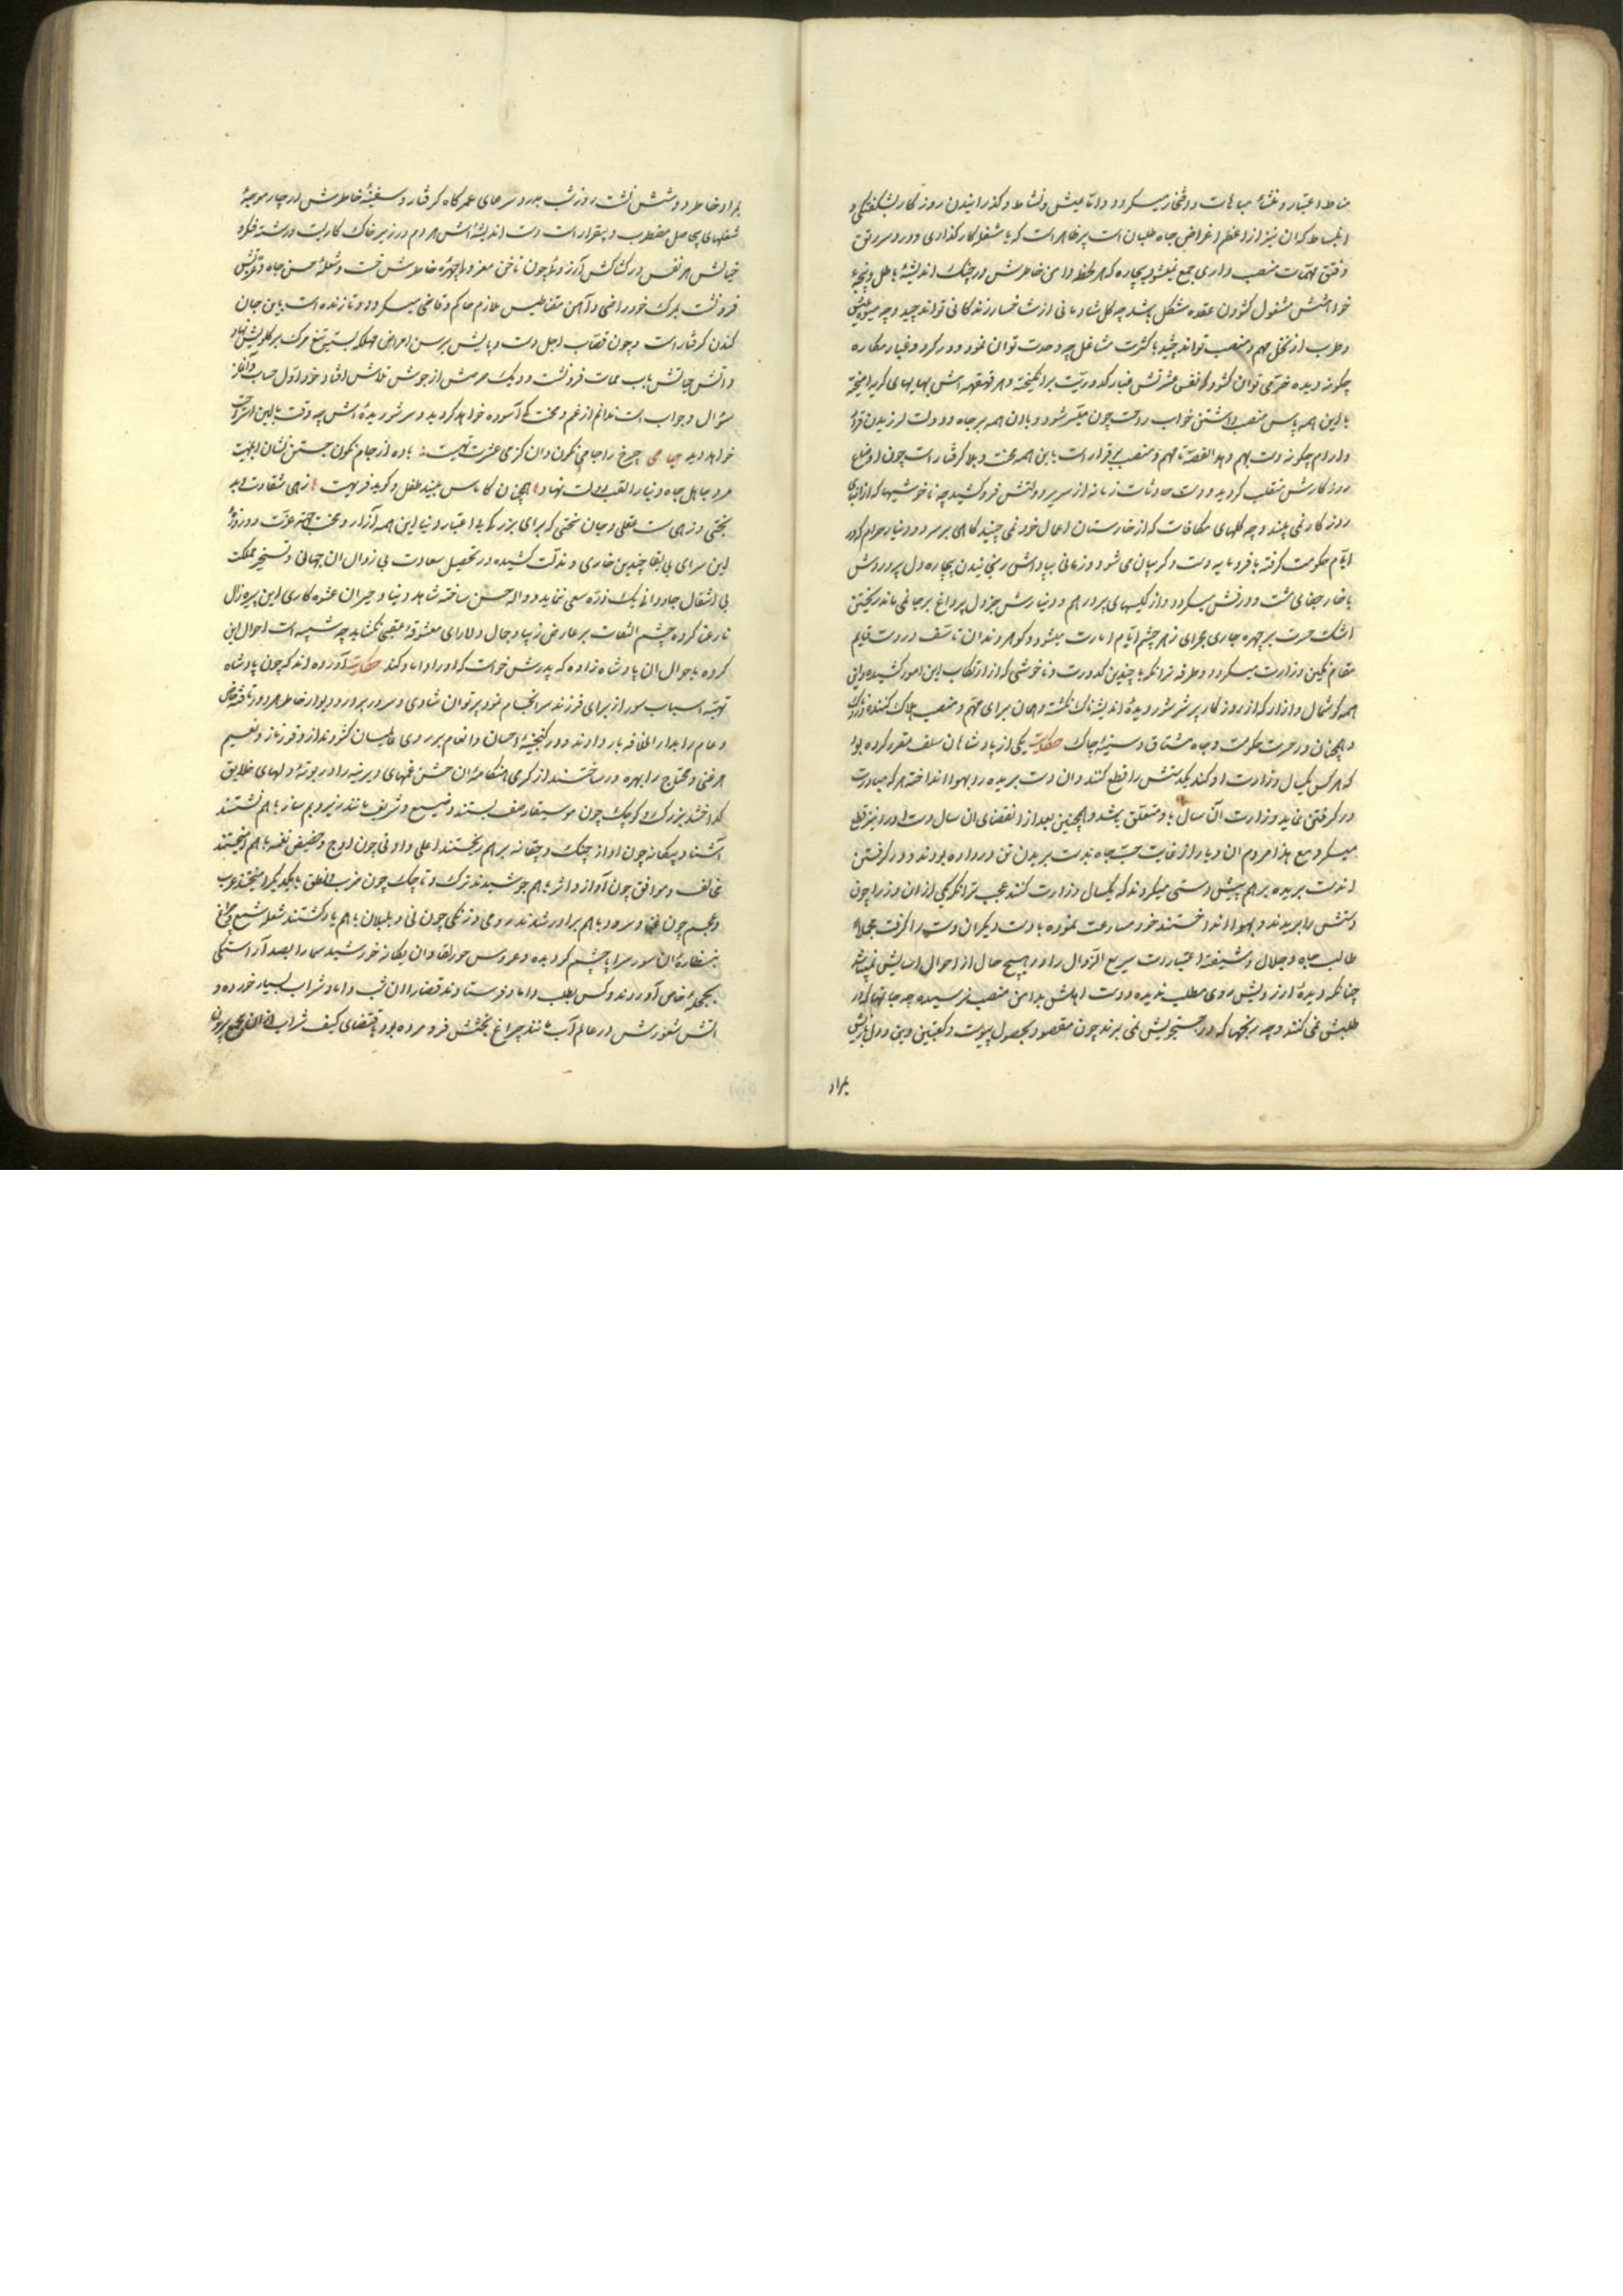 مناط اعتبار و منشأ مباهات و افتخار میگردد و اما عیش و نشاط و گذرانیدن روزگار بشگفتگی و
انبساط که آن نیز از اعظم اغراض جاه طلبان است پر ظاهر است که با شغل کارگذاری و درد سر رتق
و فتق مهمات منصب داری جمع نمیشود بیچاره که هر لحظه دامن خاطرش در چنگ اندیشه باطل و پنجه
خواهش مشغول گشودن عقده مشکل باشد چه گل شادمانی از شاخسار زندگانی تواند چید و چه میوه عیش
و طرب از نخل مهم و منصب تواند چشید با کثرت مشاغل چه وحدت توان نمود و در گرد و غبار مکاره
چگونه دیده خرمی توان گشود که نفس عشرتش غبار کدورتیست برانگیخته و هر قهقهه اش بهایهای گریه آمیخته
با این همه پاس منصب داشتن خواب راحت چون میسر شود و با آن همه بر جاه و دولت لرزیدن قرار
و آرام چگونه دست بهم دهد القصه تا مهم و منصب برقرار است باین همه محنت و بلا گرفتار است چون اوضاع
روزگارش منقلب گردید و دست حادثات زمانه از سریر دولتش فرو کشید چه ناخوشیها که از ابنای
روزگار نمی بیند و چه گلهای مکافات که از خارستان اعمال خود نمی چیند گاهی بر سر درد دینار حرام که در
ایام حکومت گرفته با فرومایه دست و گریبان می شود و زمانی بپاداش رنجانیدن بیچاره دل پر دردش
با خار جفای مشت و درفش میگردد و از کیسهای پر درهم و دینارش جز دل پر داغ بر جا نمی ماند ریختن
اشک حسرت بر چهره جاری مجرای زهر چشم ایام امارت میشود و گوهر دندان تأسف در دست قایم
مقام نگین وزارت میگردد و طرفه تر آنکه با چندین کدورت و ناخوشی که از ارتکاب این امور کشیده و این
همه گوشمال و آزار که از روزگار پر شر و شور دیده اندیشه ناک نگشته و همان برای مهم و منصب هلاک کننده
و همچنان در حسرت حکومت و جاه مشتاق و سینه چاک حکایت یکی از پادشاهان سلف مقرر کرده بود
که هر کس یکسال وزارت او کند یکدستش را قطع کنند و آن دست بریده را بهوا انداخته هر که مبادرت
در گرفتن نماید وزارت آن سال باو متعلق باشد و همچنین بعد از انقضای آن سال دست او را نیز قطع
میکرد مع هذا مردم آن دیار از غایت حب جاه بدست بریدن تن در داده بودند و در گرفتن
آندست بریده بر هم پیش دستی میکردند که یکسال وزارت کنند عجب تر آنکه یکی از آن وزرا چون
دستش را بریدند و بهوا انداختند خود مسارعت نموده با دست دیگر آن دست را گرفت مجملاً
طالب جاه و جلال و شیفته اعتبارات سریع الزوال را در هیچ حال از احوال آسایش نمیباشد
چنانکه دیده آرزویش روی مطلب ندیده و دست املش بدامن منصب نرسیده چه جانها که در
طلبش نمی کنند و چه رنجها که در جستجویش نمی برند چون مقصود بحصول پیوست و کعبتین دین و دل باریش
بمراد
بمراد خاطر درست نشست روز و شب بدرد سرهای عمرکاه گرفتار و سفینه خاطرش در چار موجه
شغلهای بیحاصل مضطرب و بیقرار است دست اندیشه اش هر دم در زیر خاک کاریست و رشته فکر و
خیالش هر نفس در کشاکش آرزو چون ناخن مغرور با چهره خاطرش خست و شعله حسن جاه و
فرو نشست بمرگ خود راضی و آهن مقناطیس ملازم حاکم و قاضی میگردد و تا زنده است باین جان
کندن گرفتار است و چون قصاب اجل دست و پایش برسن امراض مهلکه بست تیغ مرگ بر گلویش نهاد
و آتش حیاتش بآب ممات فرو نشست و دیک حرصش از جوش تلاش افتاد خود اول حساب و آغاز
سؤال و جواب است ندانم از غم و محنت کی آسوده خواهد گردید و سر شوریده اش چه وقت بالین استراحت
خواهد دید جامی چرخ را جام نگون دان کز می عشرت تهیست باده از جام نگون جستن نشان ابلهیست
مرد جاهل جاه دنیا را لقب دولت نهاد همچنان کاماس بیند طفل و گوید فربهست زهی شقاوت و بد
بختی و زهی سست عقلی و جان سختی که برای بزرگی بی اعتبار دنیا این همه آزار و محنت و جهت عزت دو روزه
این سرای بی بقا چندین خاری و مذلت کشیده در تحصیل سعادت بی زوال آن جهانی و تسخیر مملکت
بی انتقال جاودانی یک ذره سعی ننماید و واله حسن ساخته شاهد دنیا و حیران عشوه کاری این پیره زال
نارعنا گردیده چشم التفات بر عارض زیبا و جمال دلارای معشوقه عقبی نگشاید چه شبیه است احوال این
گروه باحوال آن پادشاه زاده که پدرش خواست که او را داماد کند حکایت آورده اند که چون پادشاه
تهیه اسباب سور از برای فرزند سرانجام نمود پرتوان شادی و سرور بر در و دیوار خاطر هر دور تافت خاص
و عام را بدار الخلافه بار دادند و در گنجینه احسان و انعام بر روی عالمیان گشودند از وفور ناز و نعیم
هر غنی و محتاج را بهره ور ساختند از گرمی هنگامه آن جشن غمهای دیرینه را در بوته دلهای خلایق
گداختند بزرگ و کوچک چون موسیقار صف بستند وضیع و شریف مانند زیر و بم ساز با هم نشستند
آشنا و بیگانه چون آواز چنگ و چغانه بر هم ریختند اعلی و ادنی چون اوج و حضیض نغمه با هم آمیختند
مخالف و موافق چون آواز و اثر با هم جوشیدند ترک و تاجیک چون ضرب و نطق با یکدیگر آمیختند عرب
و عجم چون و سرود با هم برادر شدند رومی و زنگی چون نی و بلبلان با هم یار گشتند شعله شمع و چراغ
بنظاره آن سور سراپا چشم گردیده و عروس حور لقاد آن یگانه خورشید سما را بصد آراستگی
بحجله خاص آوردند و کس بطلب داماد فرستادند قضا را آن شب داماد شراب بسیار خورده و
آتش شعورش در عالم آب مانند چراغ بختش فرو مرده بود باقتضای کیف شراب از آن جمع بیرون